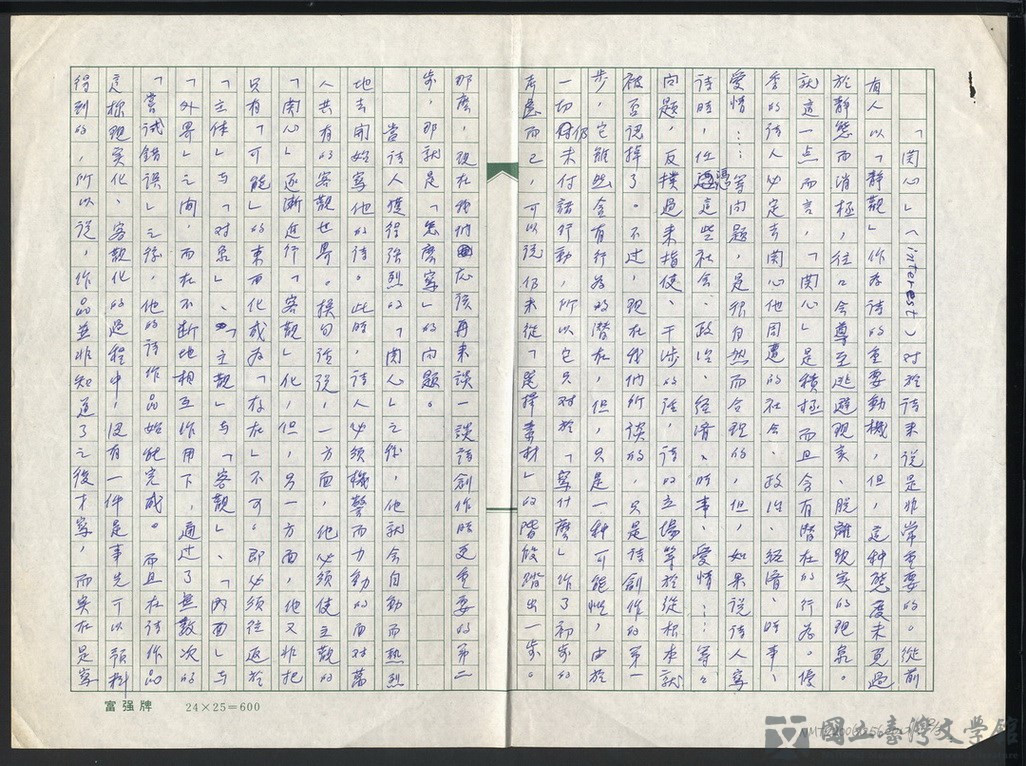 「関心」(interest)対於詩来説是非常重要的。從前
有人以「静観」作為詩的重要動機,但,這种態度未免過
於静態而消極,往往会尊至逃避現実、脱離現実的現象。
就這一点而言,「関心」是積極而且含有潜在的行為。優
秀的詩人必定去関心他周遭的社会、政治、経済、時事、
愛情……等问題,是很自然而合理的,但,如果説詩人寫
詩時,僅憑這些社会、政治、経済、時事、愛情……等等
问題,反撲過来指使、干涉的話,詩的立場等於從根本就
被否認掉了。不過,現在我們所談的,只是詩創作的第一
步,它雖然含有行為的潜在,但,只是一种可能性,由於
一切仍未付諸行動,所以它只对於「寫什麼」作了初步的
考慮而已,可以説仍未從「選擇素材」的階段踏出一步。
那麼,現在我們應该再来談一談詩創作時更重要的第二
步,那就是「怎麼寫」的问題。
當詩人獲得強烈的「関心」之後,他就会自動而熱烈
地去開始寫他的詩。此時,詩人必須機警而力動的面対萬
人共有的客觀世界。換句話説,一方面,他必須使主観的
「関心」逐漸進行「客観」化,但,另一方面,他又非把
只有「可能」的東西化成為「存在」不可。即必須往返於
「主体」与「対象」、「主観」与「客観」、「内面」与
「外界」之间,而在不断地相互作用下,通过了無数次的
「嘗試錯误」之後,他的詩作品始能完成。而且在詩作品
這樣現実化、客観化的過程中,没有一件是事先可以預料
得到的,所以説,作品並非知道了之後才寫,而実在是寫
富强牌 24×25=600
國立臺灣文學館